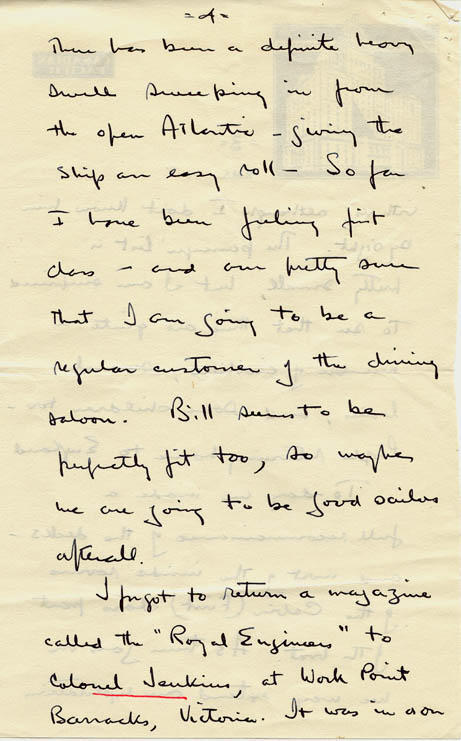 =4=
There has been a definite heavy
swell sweeping in from
the open Atlantic - giving the
ship an easy roll - So far
I have been feeling first
class - and am pretty sure
that I am going to be a
regular customer of the dining
saloon. Bill seems to be
perfectly fit too, so maybe
we are going to be good sailors
afterall.
I forgot to return a magazine
called the "Royal Engineers" to
Colonel Jenkins, at Work Point
Barracks, Victoria. It was in a